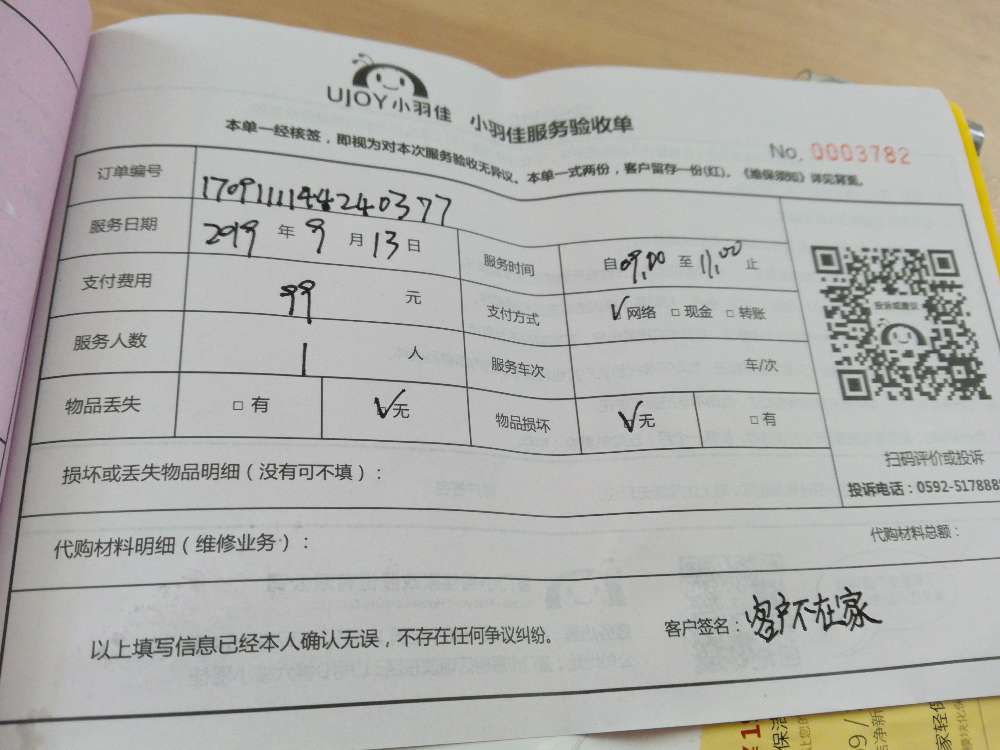 UJOY小羽佳 小羽佳服务验收单
本单一经核签，即视为对本次服务验收无异议。本单一式两份，客户留存一份(红)。《维保须知》详见背面。
No. 0003782
订单编号 1709111144240377
服务日期 2019 年 9 月 13 日 服务时间 自 09:00 至 11:00 止
支付费用 99 元 支付方式 ☑网络 □现金 □转账
服务人数 1 人 服务车次 车/次
物品丢失 □有 ☑无 物品损坏 ☑无 □有
投诉或建议
扫码评价或投诉
投诉电话：0592-5178885
损坏或丢失物品明细（没有可不填）：
代购材料明细（维修业务）：
代购材料总额：
以上填写信息已经本人确认无误，不存在任何争议纠纷。
客户签名：客户不在家